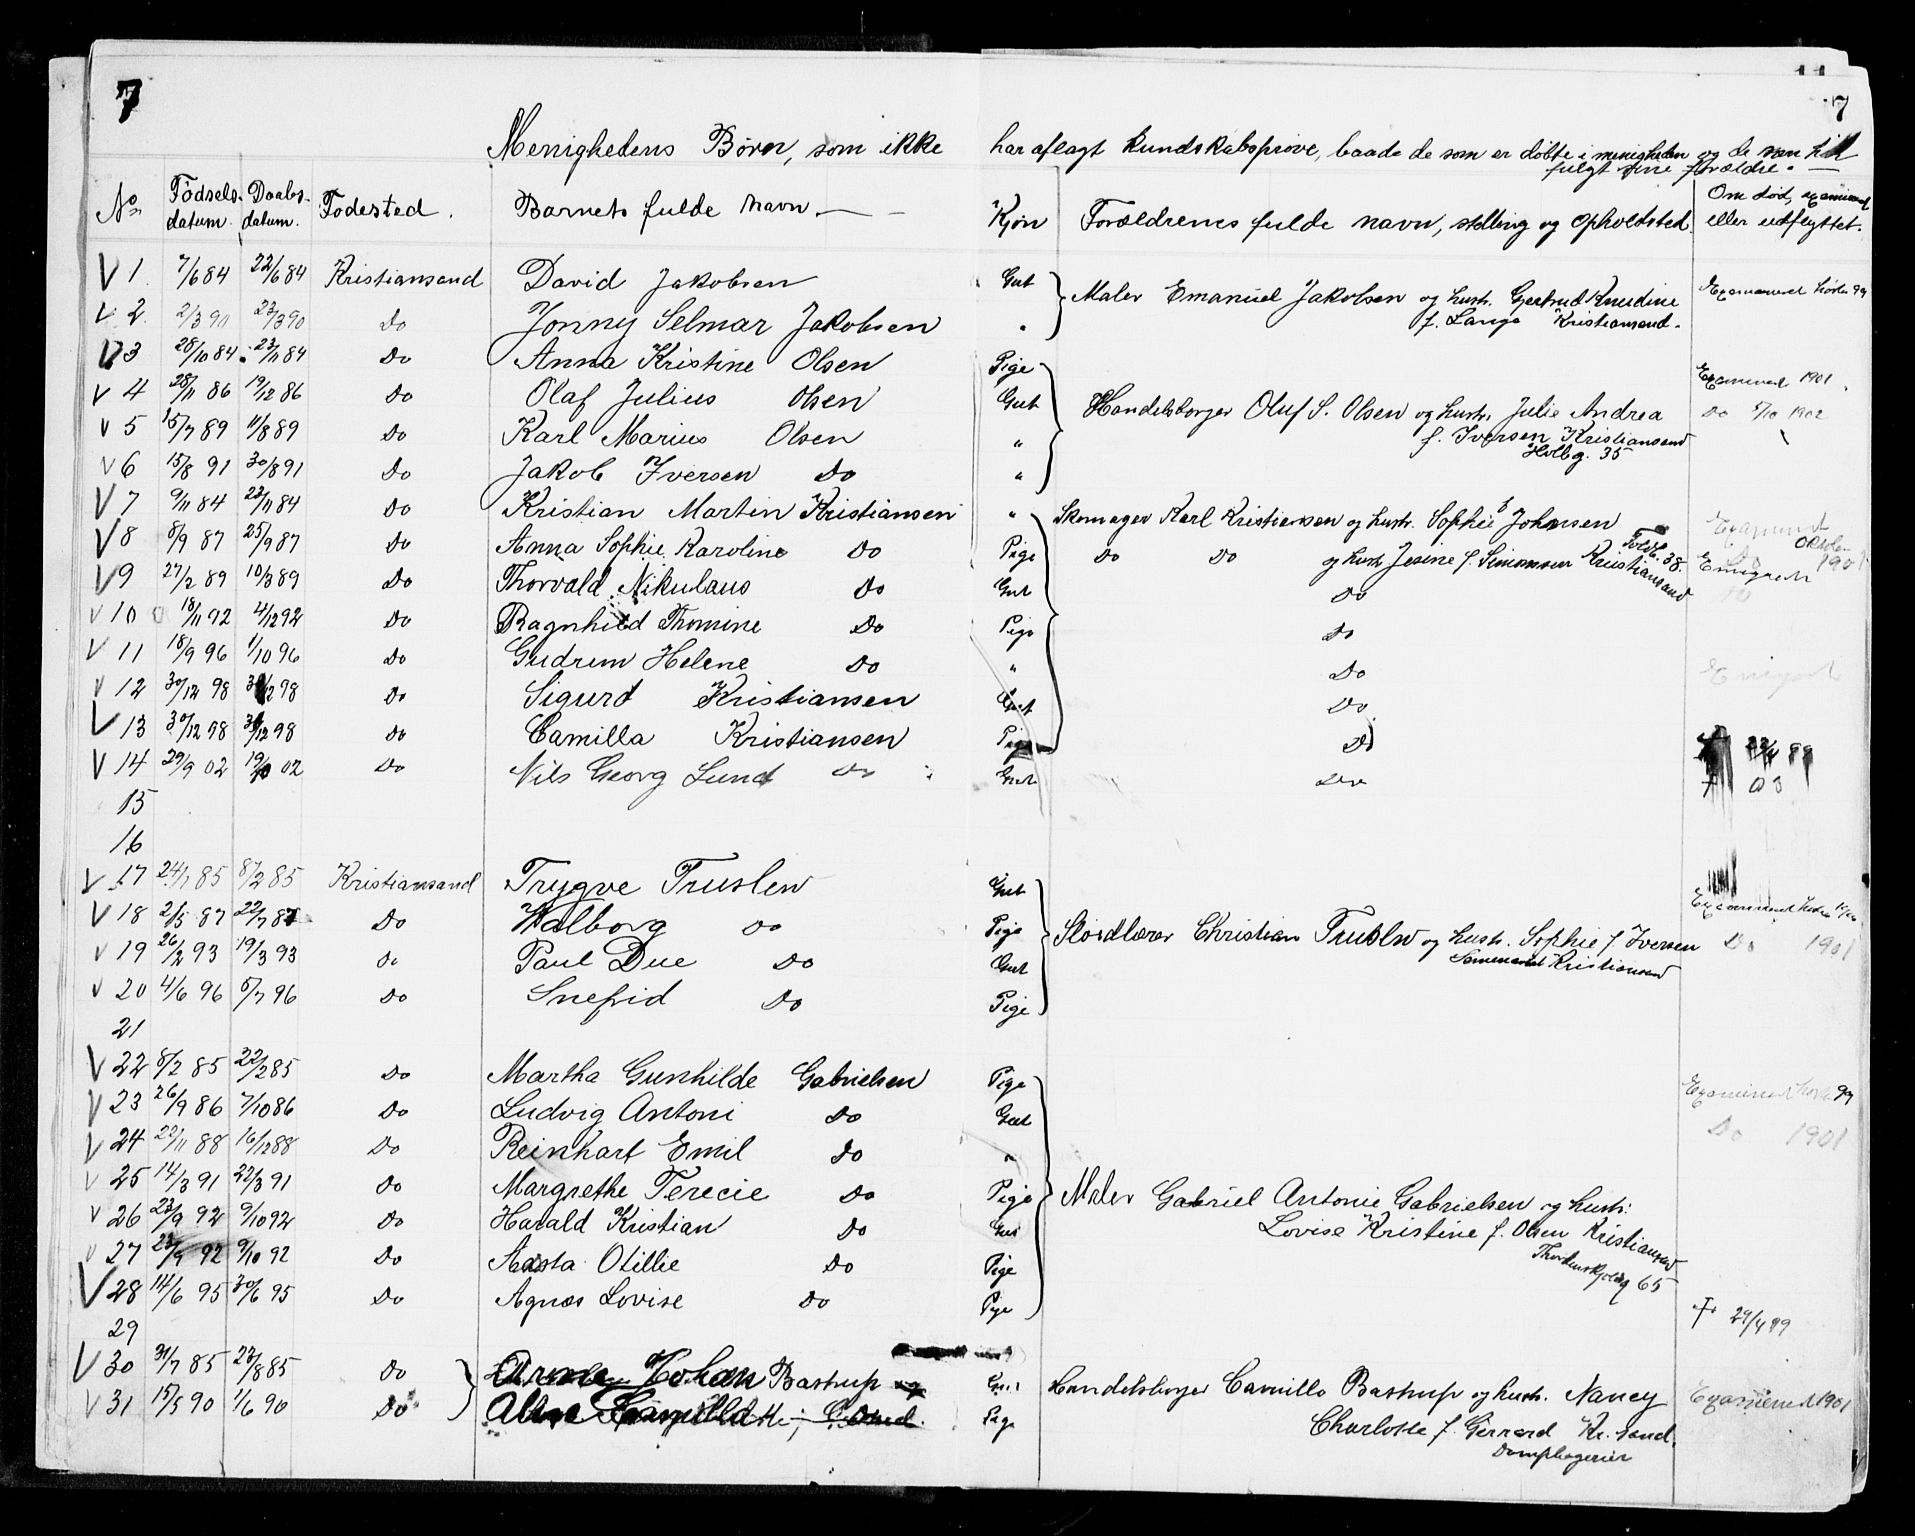 7 7
Menighedens Børn, som ikke har aflagt Kundskabsprøve, baade de som er døbte i menigheden og de som
fulgt sine forældre.
No Fødsels datum. Daabs datum. Fødested. Barnets fulde Navn Kjøn Forældrenes fulde navn, stilling og Opholdsted. Om død, examineret eller udflyttet.
1 7/6 84 22/6 84 Kristiansand David Jakobsen Gut Maler Emanuel Jakobsen og hustr. Gertrud Knudine Examineret 99
2 2/3 90 23/3 90 Do Jonny Selmar Jakobsen " f. Lange Kristiansand.
3 28/10 84 23/11 84 Do Anna Kristine Olsen Pige
4 28/11 86 19/12 86 Do Olaf Julius Olsen Gut Handelsborger Oluf S. Olsen og hustr. Julie Andrea Examineret 1901
5 15/7 89 11/8 89 Do Karl Marius Olsen " f. Iversen Kristiansand Do 5/10 1902
6 15/8 91 30/8 91 Do Jakob Iversen Do " Holbg. 35
7 9/11 84 23/11 84 Do Kristian Martin Kristiansen " Skomager Karl Kristiansen og hustr. Sophie f Johnsen
8 8/9 87 25/9 87 Do Anna Sophie Karoline Do Pige Do Do og hust. Jesine f. Simonsen Kristiansand Toldb. 38. 1901
9 27/2 89 10/3 89 Do Thorvald Nikulaus Do Gut Do
10 18/11 92 4/12 92 Do Ragnhild Thomine Do Pige Do
11 18/9 96 11/10 96 Do Gudrun Helene Do " Do
12 30/12 98 30/12 98 Do Sigurd Kristiansen Gut Do
13 30/12 98 30/12 98 Do Camilla Kristiansen Pige Do
14 29/9 02 19/10 02 Do Nils Georg Lund Do Gut Do † Do
15
16
17 24/1 85 8/2 85 Kristiansand Trygve Truslew Gut
18 2/5 87 22/7 87 Do Walborg Do Pige Sløidlærer Christian Truslew og hustr. Sophie f. Iversen Examineret
19 26/2 93 19/3 93 Do Paul Due Do Gut Kristiansand Do 1901
20 4/6 96 5/7 96 Do Snefrid Do Pige
21
22 8/2 85 22/2 85 Do Martha Gunhilde Gabrielsen Pige
23 26/9 86 7/10 86 Do Ludvig Antoni Do Gut Examineret 99
24 22/11 88 16/12 88 Do Reinhart Emil Do " Do 1901
25 14/3 91 22/3 91 Do Margrethe Terecie Do Pige Maler Gabriel Antonie Gabrielsen og hustr.
26 23/9 92 9/10 92 Do Harald Kristian Do Gut Lovise Kristine f. Olsen Kristiansand
27 23/9 92 9/10 92 Do Aasta Otillie Do Pige 65
28 14/6 95 30/6 95 Do Agnes Lovise Do Pige † 29/4 99
29
30 31/7 85 23/8 85 Do Arne Johan Bastrup Gut Handelsborger Camillo Bastrup og hustr. Nancy Examineret 1901
31 15/5 90 1/6 90 Do Pige Charlotte f. Gerrard Kr.sand.